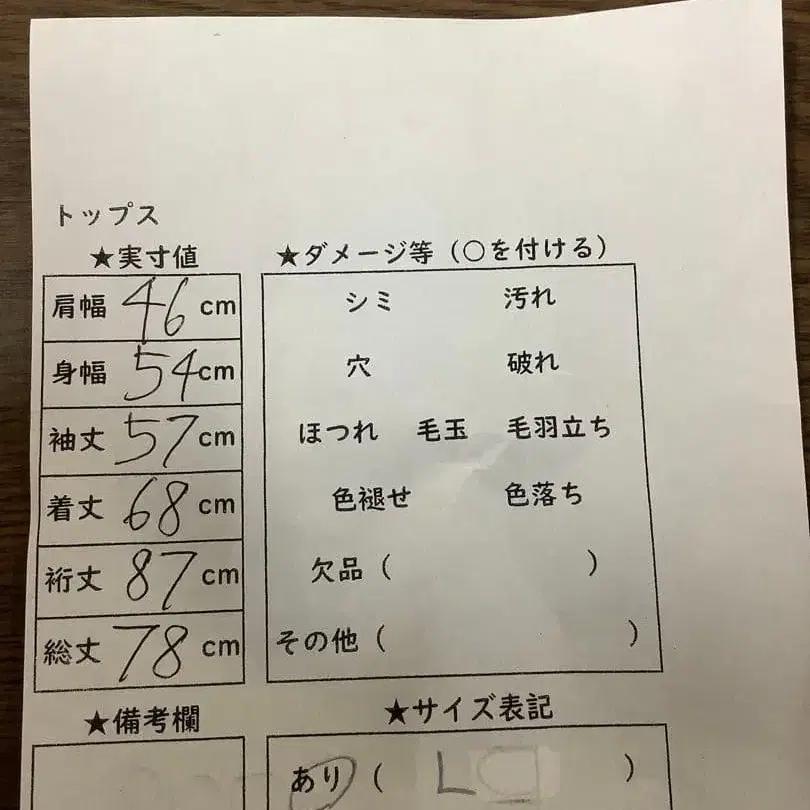 トップス
★実寸値
肩幅 46 cm
身幅 54 cm
袖丈 57 cm
着丈 68 cm
裄丈 87 cm
総丈 78 cm
★ダメージ等（○を付ける）
シミ 汚れ
穴 破れ
ほつれ 毛玉 毛羽立ち
色褪せ 色落ち
欠品（ ）
その他（ ）
★備考欄
★サイズ表記
あり（ L ）